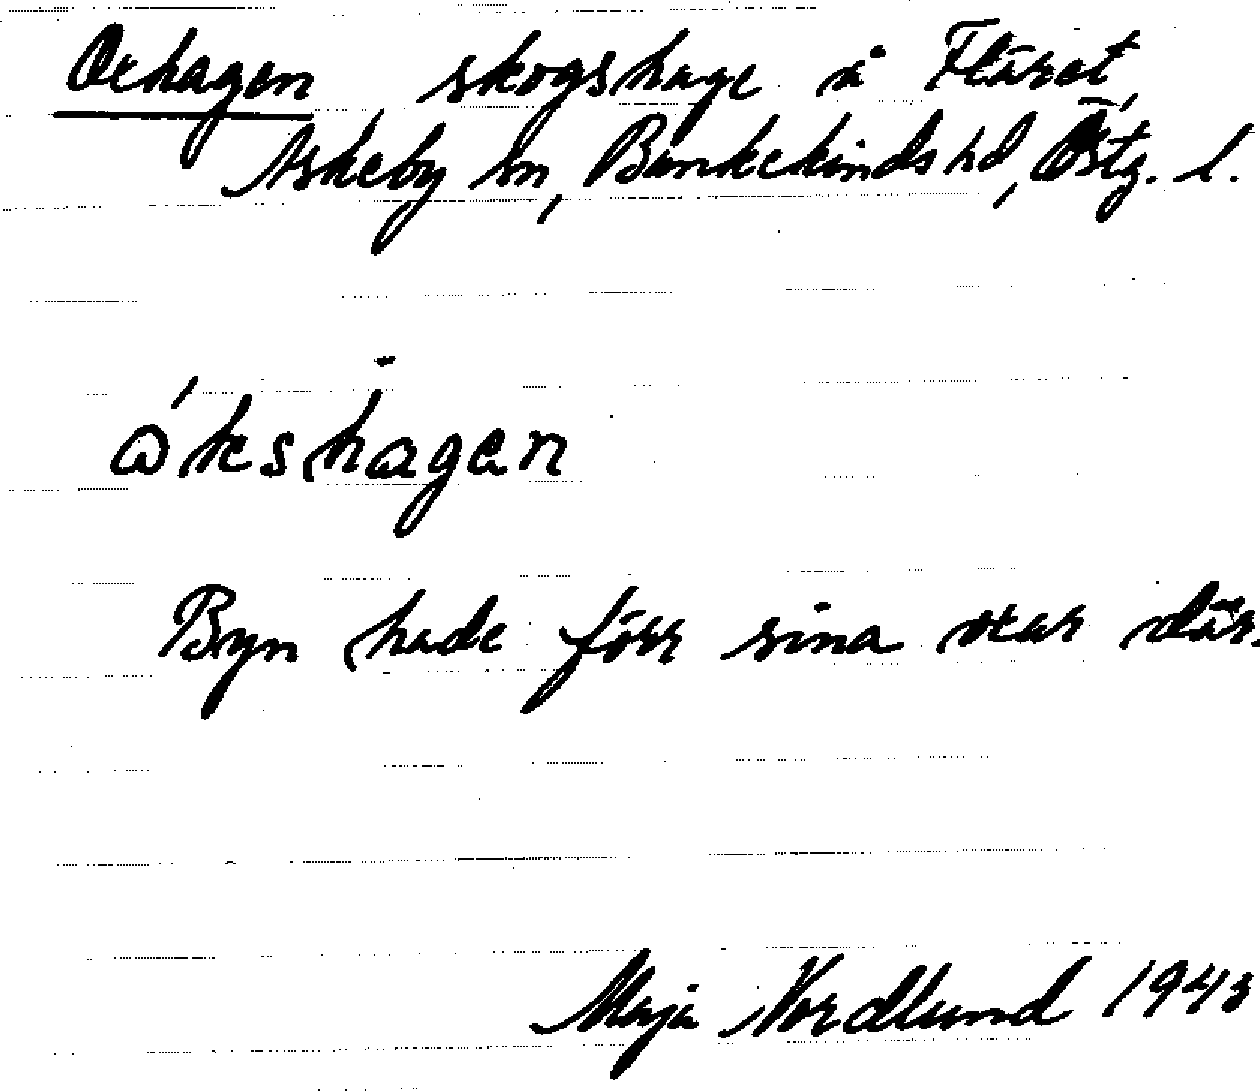 Oxhagen skogshage å Fläret,
Askeby sn, Bankekinds hd, Östg. l.
ók̀shagen
Byn hade förr sina oxar där.
Maja Nordlund 1943